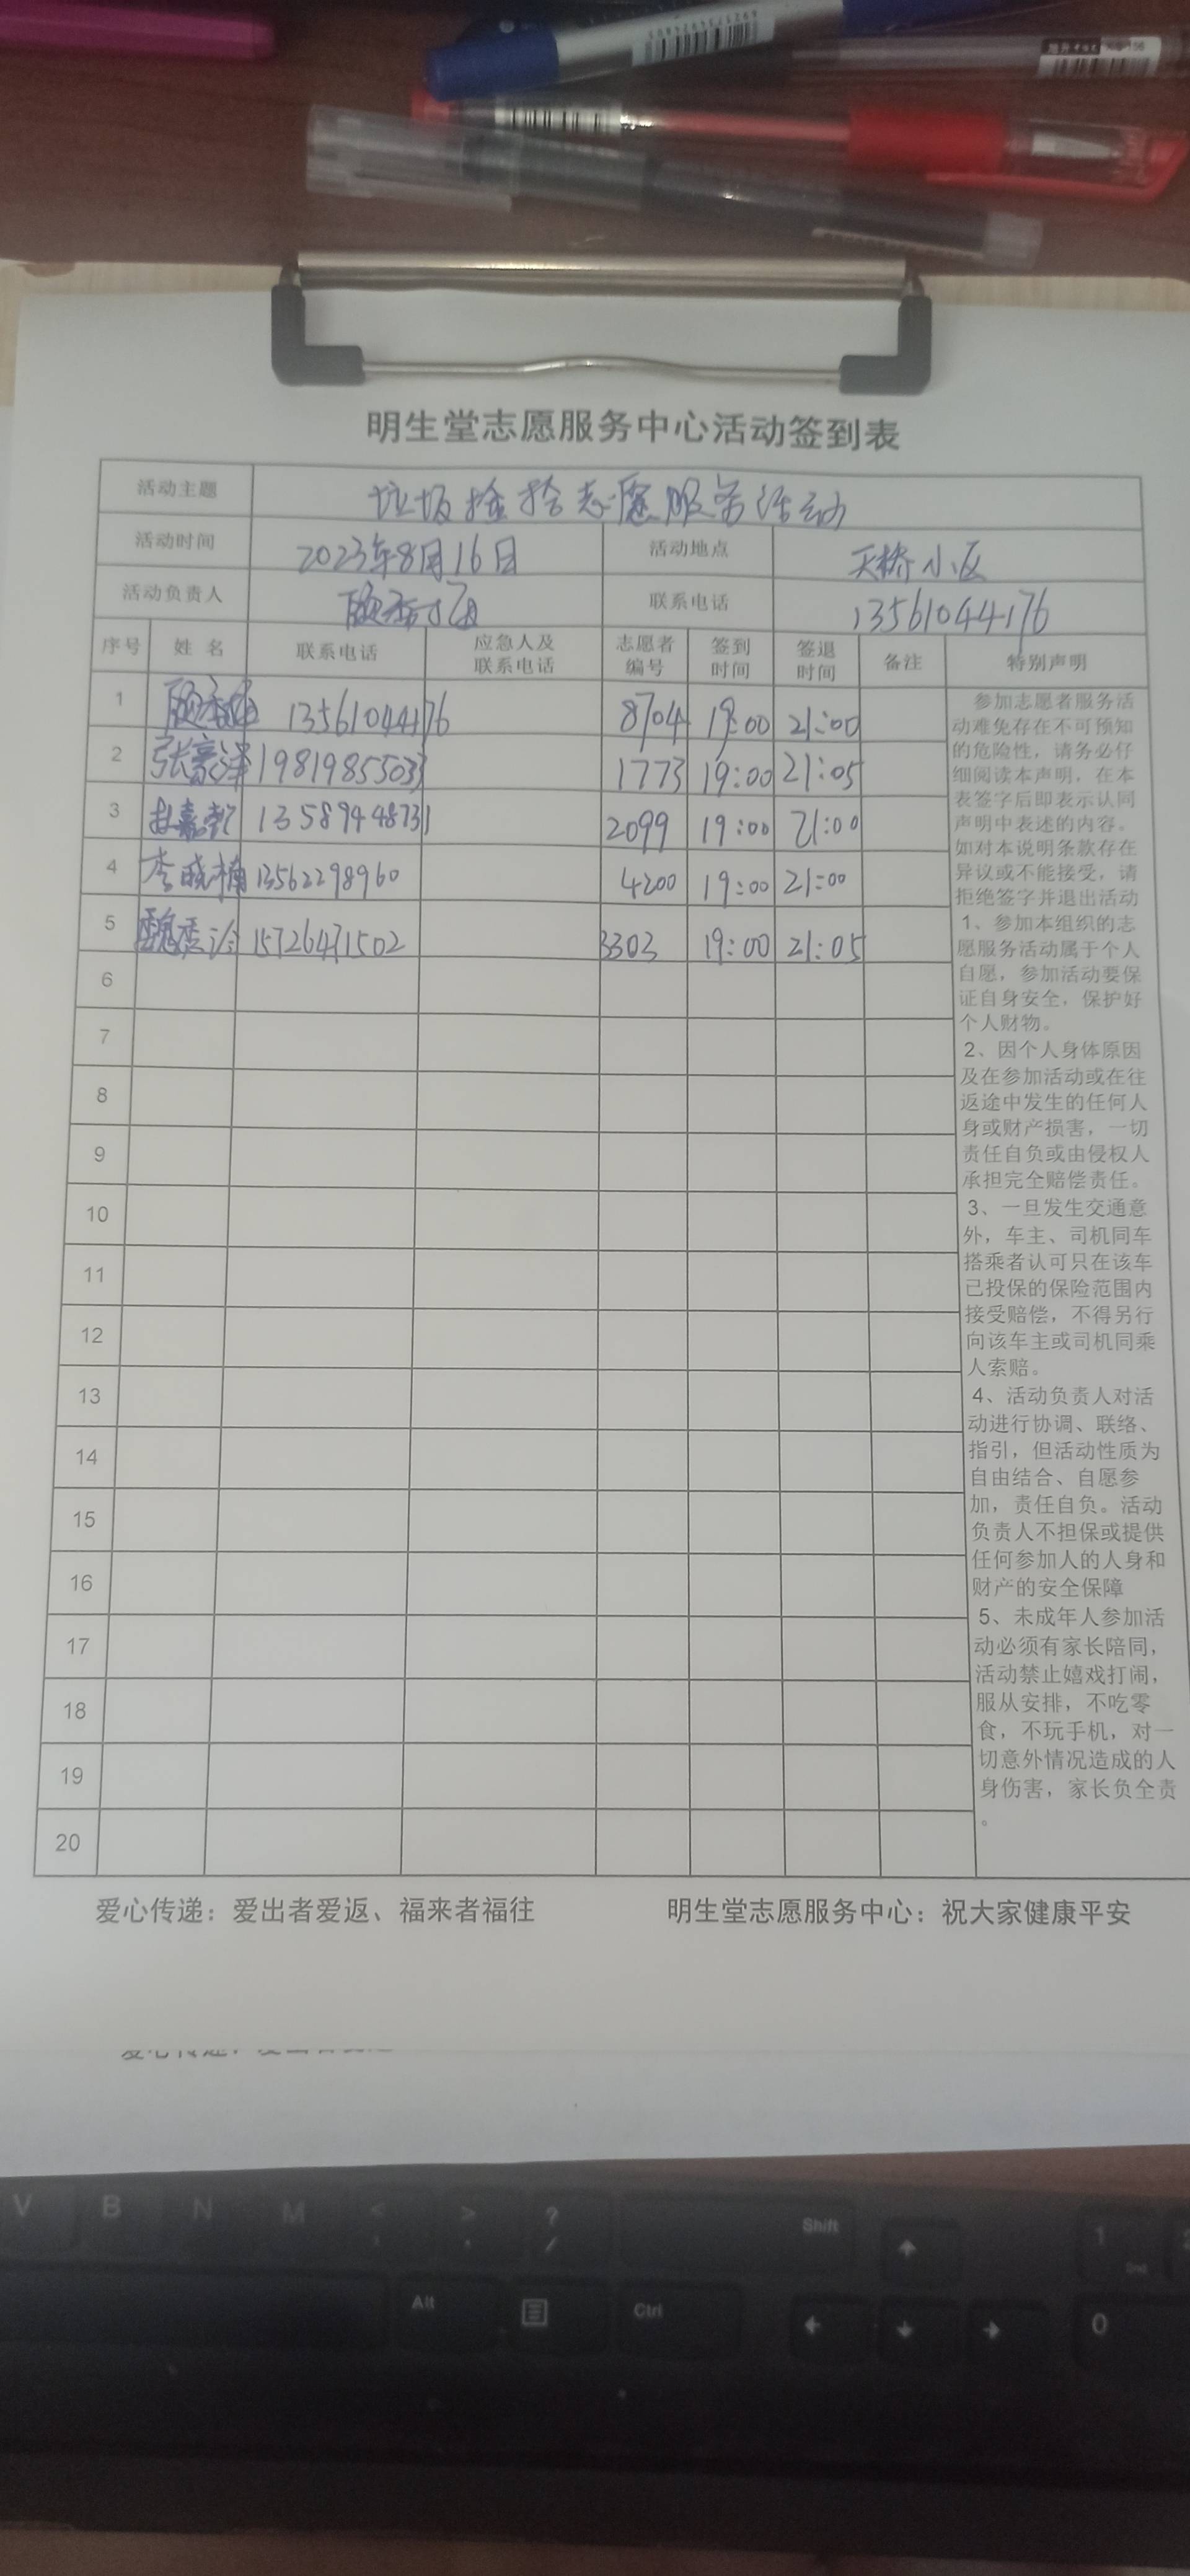 明生堂志愿服务中心活动签到表
活动主题 垃圾捡拾志愿服务活动
活动时间 2023年8月16日 活动地点 天桥小区
活动负责人 联系电话 13561044176
序号 姓名 联系电话 应急人及联系电话 志愿者编号 签到时间 签退时间 备注 特别声明
1 13561044176 8704 19:00 21:00
2 张豪泽 19819855033 1773 19:00 21:05
3 13589448731 2099 19:00 21:00
4 李晓楠 13562298960 4200 19:00 21:00
5 15726471502 3303 19:00 21:05
6
7
8
9
10
11
12
13
14
15
16
17
18
19
20
参加志愿者服务活
动难免存在不可预知
的危险性，请务必仔
细阅读本声明，在本
表签字后即表示认同
声明中表述的内容。
如对本说明条款存在
异议或不能接受，请
拒绝签字并退出活动
1、参加本组织的志
愿服务活动属于个人
自愿，参加活动要保
证自身安全，保护好
个人财物。
2、因个人身体原因
及在参加活动或在往
返途中发生的任何人
身或财产损害，一切
责任自负或由侵权人
承担完全赔偿责任。
3、一旦发生交通意
外，车主、司机同车
搭乘者认可只在该车
已投保的保险范围内
接受赔偿，不得另行
向该车主或司机同乘
人索赔。
4、活动负责人对活
动进行协调、联络、
指引，但活动性质为
自由结合、自愿参
加，责任自负。活动
负责人不担保或提供
任何参加人的人身和
财产的安全保障
5、未成年人参加活
动必须有家长陪同，
活动禁止嬉戏打闹，
服从安排，不吃零
食，不玩手机，对一
切意外情况造成的人
身伤害，家长负全责
。
爱心传递：爱出者爱返、福来者福往 明生堂志愿服务中心：祝大家健康平安
V B N M < , > . ? / Shift 1
Alt Ctrl 0